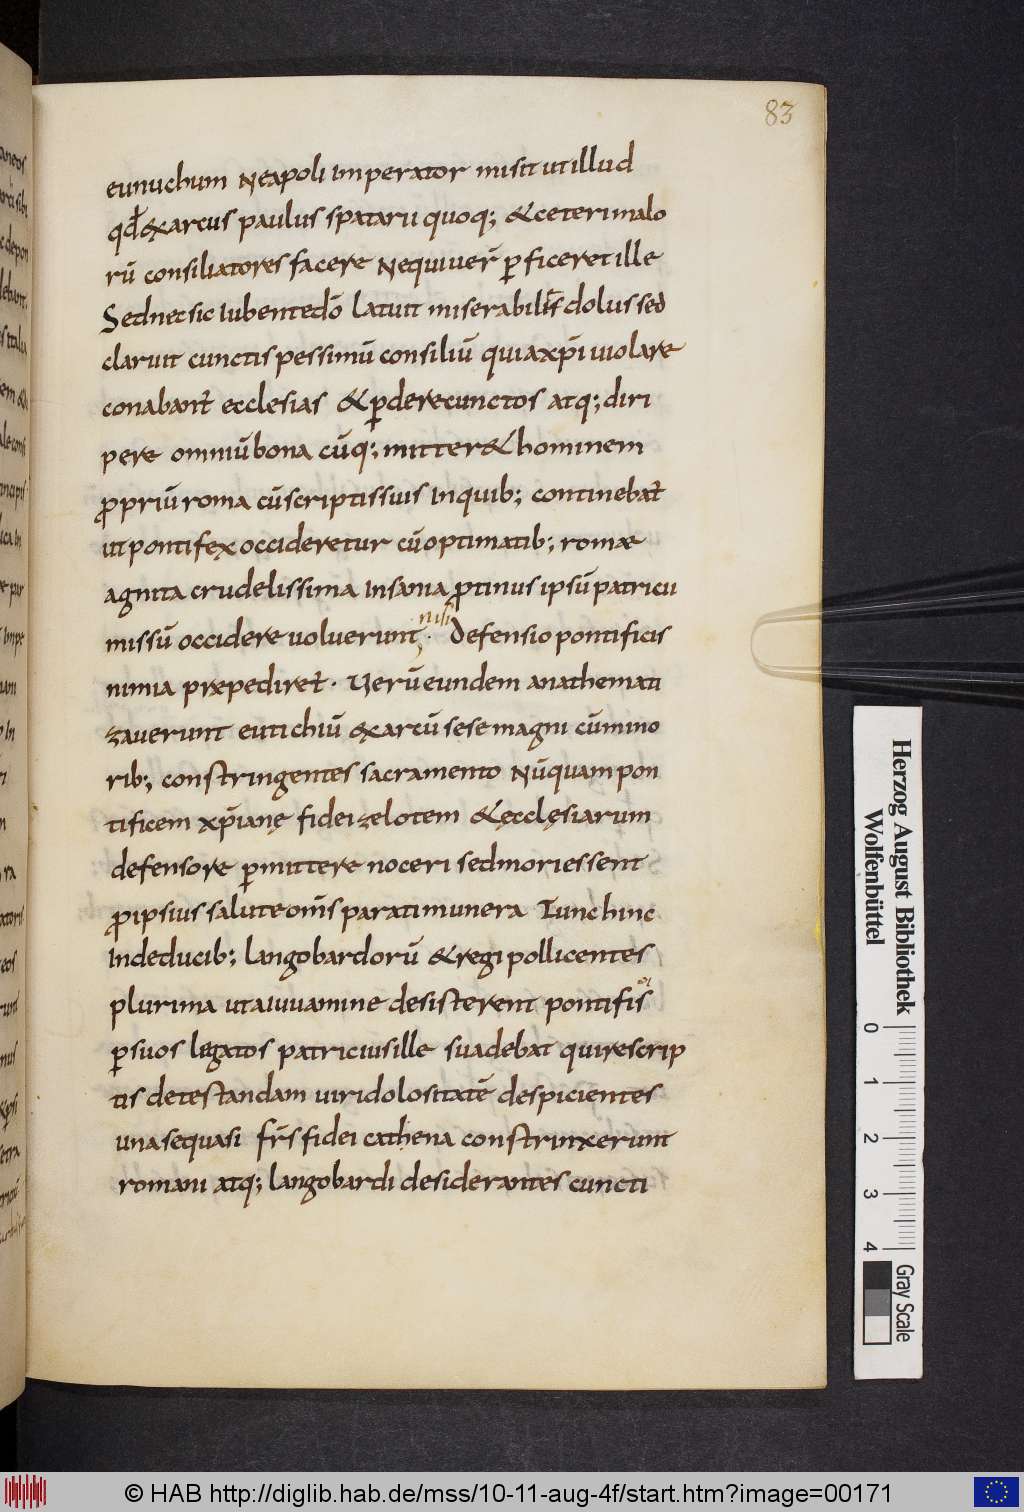 83
eunuchum Neapoli Imperator misit ut illud
qđ exarcus paulus spatarii quoq; & ceteri malo
rū consiliatores facere Nequiuer̄ ꝑficeret ille
Sed nec sic Iubente dō Latuit miserabilis dolus sed
claruit cunctis pessimū consiliū quia xp̄i uiolare
conabant̄ ecclesias & ꝑdere cunctos atq; diri
pere omniū bona cūq; mitter& hominem
ꝓpriū roma cū scriptis suis In quib; continebat̄
ut pontifex occideretur cū optimatib; romæ
agnita crudelissima Insania ꝓtinus ipsū patricii
missū occidere uoluerunt · nisi Defensio pontificis
nimia præpediret̄ · Verū eundem anathemati
zauerunt eutichiū exarcū sese magni cū mino
rib; constringentes sacramento Nūquam pon
tificem xp̄ianę fidei zelotem & ęcclęsiarum
defensore ꝑmittere noceri sed mori essent
ꝓ ipsius salute om̄s parati munera Tunc hinc
Inde ducib; langobardorū & regi pollicentes
plurima ut a iuuamine desisterent pontifis
ꝑ suos legatos patricius ille suadebat qui rescrip
tis detestandam uiri dolositatē despicientes
una se quasi fr̄s fidei cathena constrinxerunt
romani atq; langobardi desiderantes cuncti
Herzog August Bibliothek
Wolfenbüttel
0 1 2 3 4
Gray Scale
© HAB http://diglib.hab.de/mss/10-11-aug-4f/start.htm?image=00171